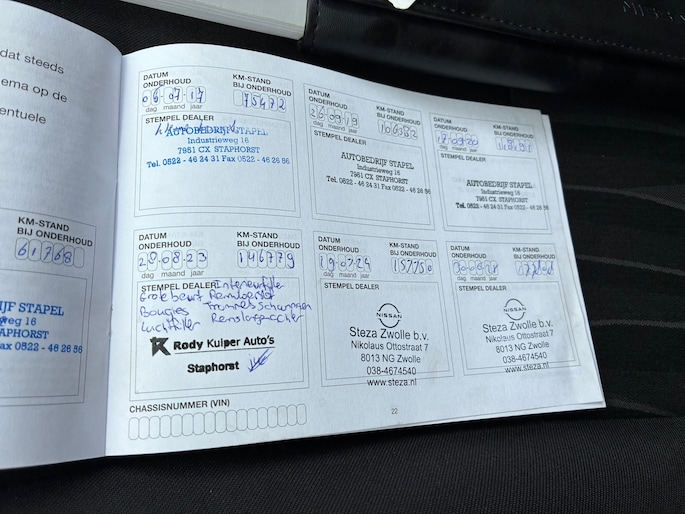 dat steeds
ema op de
entuele
KM-STAND
BIJ ONDERHOUD
61768
JF STAPEL
weg 16
APHORST
Fax 0522 - 46 26 86
DATUM
ONDERHOUD
KM-STAND
BIJ ONDERHOUD
06 07 17
75472
dag maand jaar
STEMPEL DEALER
AUTOBEDRIJF STAPEL
Industrieweg 16
7951 CX STAPHORST
Tel. 0522 - 46 24 31 Fax 0522 - 46 26 86
DATUM
ONDERHOUD
KM-STAND
BIJ ONDERHOUD
26 09 19
106382
dag maand jaar
STEMPEL DEALER
AUTOBEDRIJF STAPEL
Industrieweg 16
7951 CX STAPHORST
Tel. 0522 - 46 24 31 Fax 0522 - 46 26 86
DATUM
ONDERHOUD
KM-STAND
BIJ ONDERHOUD
dag maand jaar
STEMPEL DEALER
AUTOBEDRIJF STAPEL
Industrieweg 16
7951 CX STAPHORST
Tel. 0522 - 46 24 31 Fax 0522 - 46 26 86
DATUM
ONDERHOUD
KM-STAND
BIJ ONDERHOUD
28 08 23
146779
dag maand jaar
STEMPEL DEALER
Interieurfilter
Grote beurt Remvloeistof
Bougies
Luchtfilter
K Rødy Kuiper Auto's
Staphorst
DATUM
ONDERHOUD
KM-STAND
BIJ ONDERHOUD
19 07 24
157750
dag maand jaar
STEMPEL DEALER
NISSAN
Steza Zwolle b.v.
Nikolaus Ottostraat 7
8013 NG Zwolle
038-4674540
www.steza.nl
DATUM
ONDERHOUD
KM-STAND
BIJ ONDERHOUD
dag maand jaar
STEMPEL DEALER
NISSAN
Steza Zwolle b.v.
Nikolaus Ottostraat 7
8013 NG Zwolle
038-4674540
www.steza.nl
CHASSISNUMMER (VIN)
22